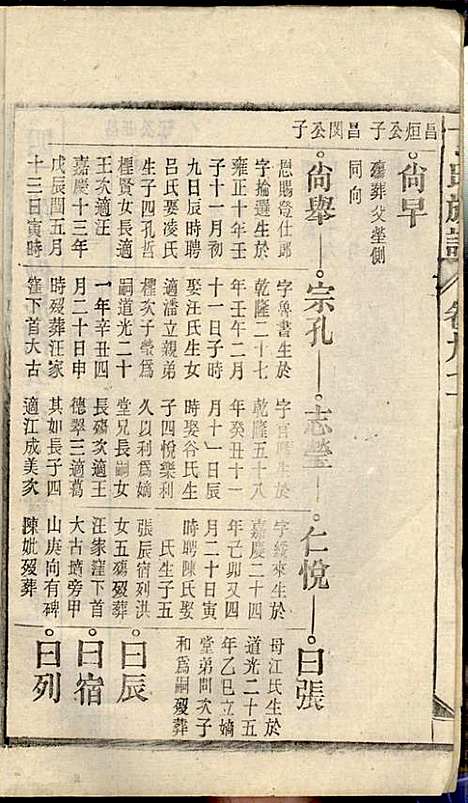 氏族譜
昌烜公子
昌閔公子
尚早
殤葬父塋側
同向
尚舉
恩賜登仕郎
字掄選生於
雍正十年壬
子十一月初
九日辰時聘
呂氏娶凌氏
生子四孔哲
桱賢女長適
王次適汪
嘉慶十三年
戊辰閏五月
十三日寅時
宗孔
字魯書生於
乾隆二十七
年壬午二月
十一日子時
娶汪氏生女
適潘立親弟
桱次子瑩爲
嗣道光二十
一年辛丑四
月二十日申
時歿葬汪家
窪下首大古
志瑩
字宮生於
乾隆五十八
年癸丑十一
月十一日辰
時娶谷氏生
子四悅樂利
久以利爲嫡
堂兄長嗣女
長殤次適王
德翠三適葛
其如長子四
適江成美次
仁悅
字綏來生於
嘉慶二十四
年己卯又四
月二十日寅
時聘陳氏娶
氏生子五
張辰宿列洪
女五殤歿葬
汪家窪下首
大古旁甲
山庚向有碑
陳妣歿葬
曰張
母江氏生於
道光二十五
年乙巳立嫡
堂弟問次子
和爲嗣歿葬
曰辰
曰宿
曰列